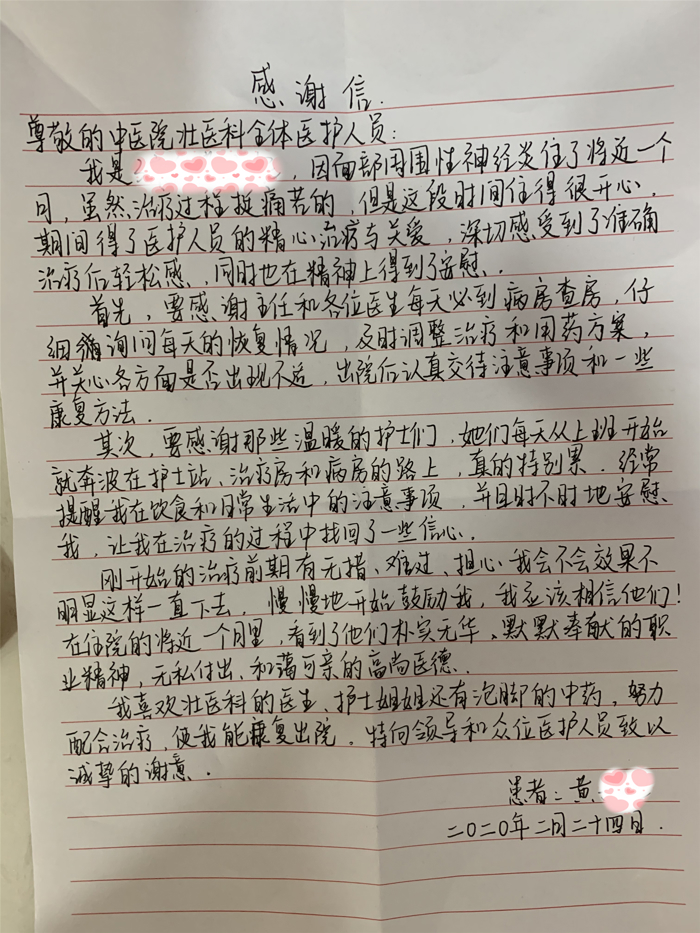 感谢信.
尊敬的中医院壮医科全体医护人员:
我是 , 因面部周围性神经炎住了将近一个
月, 虽然治疗过程挺痛苦的, 但是这段时间住得很开心.
期间得了医护人员的精心治疗与关爱, 深切感受到了准确
治疗后轻松感、同时也在精神上得到了安慰.
首先, 要感谢主任和各位医生每天必到病房查房, 仔
细 询问每天的恢复情况, 及时调整治疗和用药方案,
并关心各方面是否出现不适, 出院后认真交待注意事项和一些
康复方法.
其次, 要感谢那些温暖的护士们, 她们每天从上班开始
就奔波在护士站、治疗房和病房的路上, 真的特别累. 经常
提醒我在饮食和日常生活中的注意事项, 并且时不时地安慰
我, 让我在治疗的过程中找回了一些信心.
刚开始的治疗前期有无措、难过、担心我会不会效果不
明显这样一直下去, 慢慢地开始鼓励我, 我应该相信他们!
在住院的将近一个月里, 看到了他们朴实无华、默默奉献的职
业精神, 无私付出、和蔼可亲的高尚医德.
我喜欢壮医科的医生、护士姐姐还有泡脚的中药, 努力
配合治疗, 使我能康复出院. 特向领导和众位医护人员致以
诚挚的谢意.
患者: 黄
二0二0年二月二十四日.